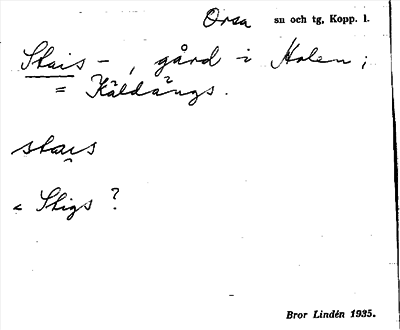 Orsa sn och tg, Kopp. l.
Stais -, gård i Holen;
= Käldängs.
stai̯s
< Stigs ?
Bror Lindén 1935.